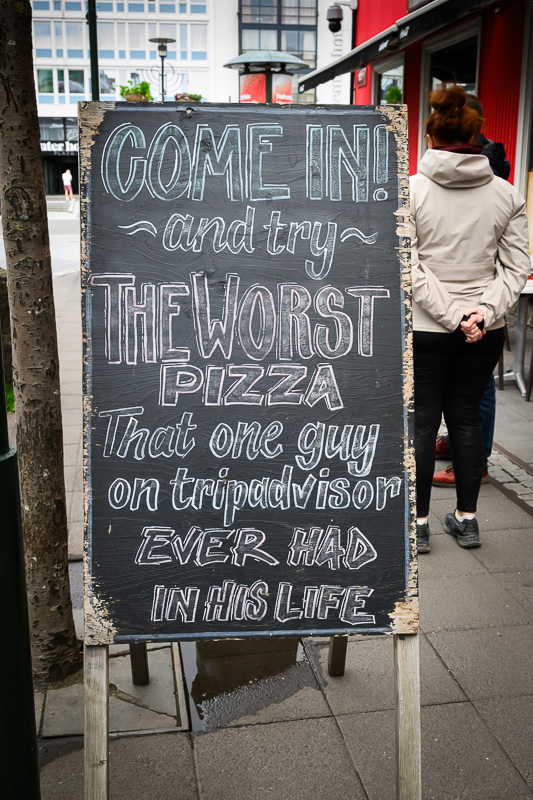 COME IN!
~and try~
THE WORST
PIZZA
That one guy
on tripadvisor
EVER HAD
IN HIS LIFE